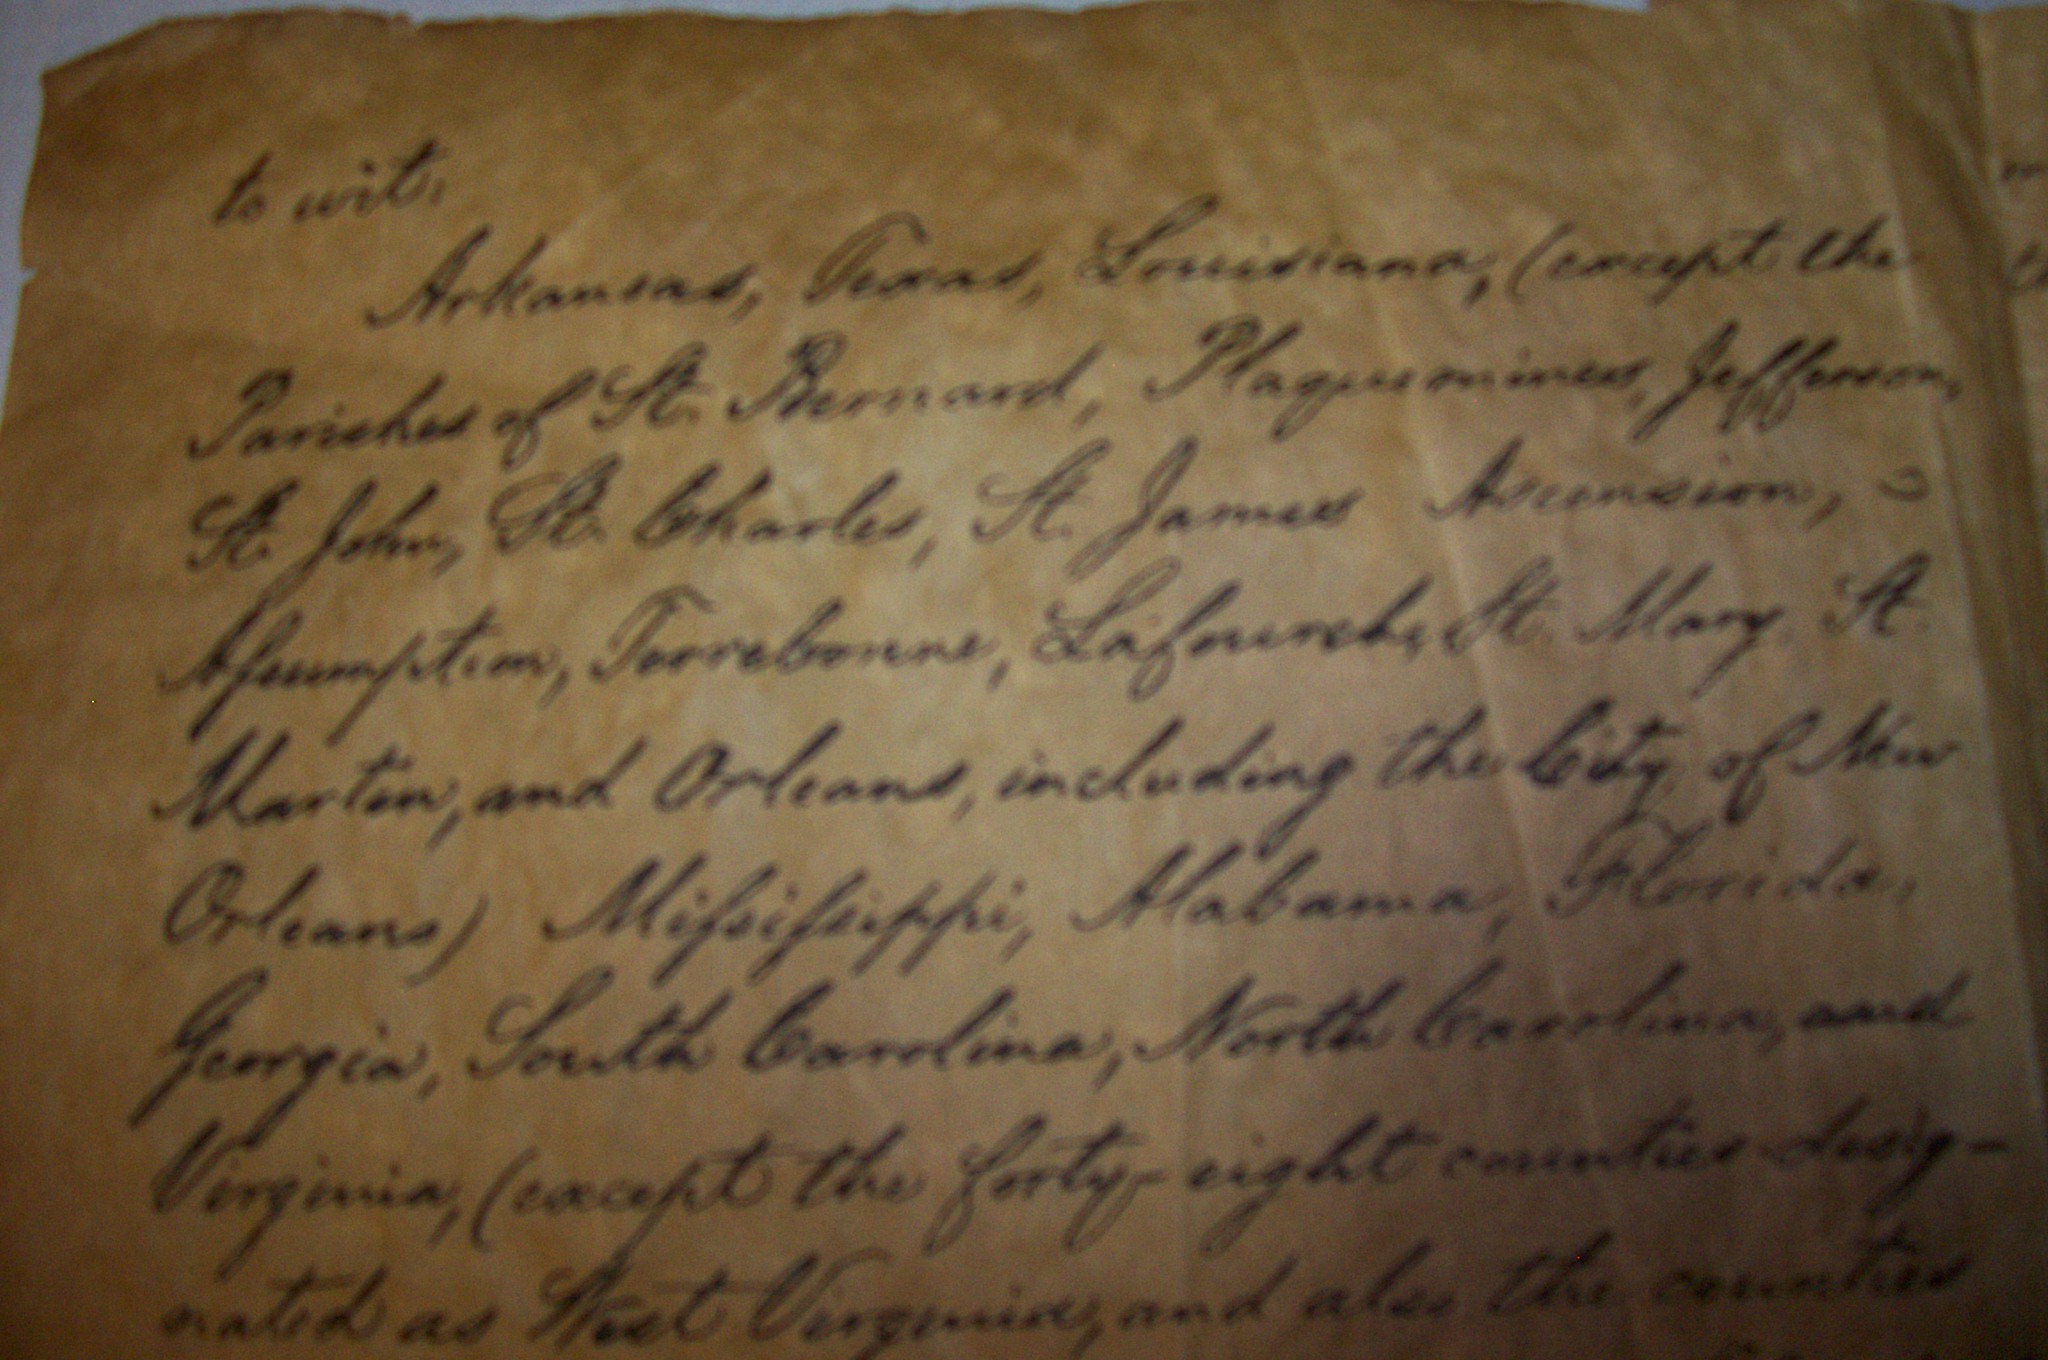 to wit,
Arkansas, Texas, Louisiana, (except the
Parishes of St. Bernard, Plaquemines, Jefferson,
St. John, St. Charles, St. James Ascension,
Aſsumption, Terrebonne, Lafourche, St. Mary, St.
Martin, and Orleans, including the City of New
Orleans) Miſsiſsippi, Alabama, Florida,
Georgia, South Carolina, North Carolina, and
Virginia, (except the forty-eight counties desig-
nated as West Virginia, and also the counties